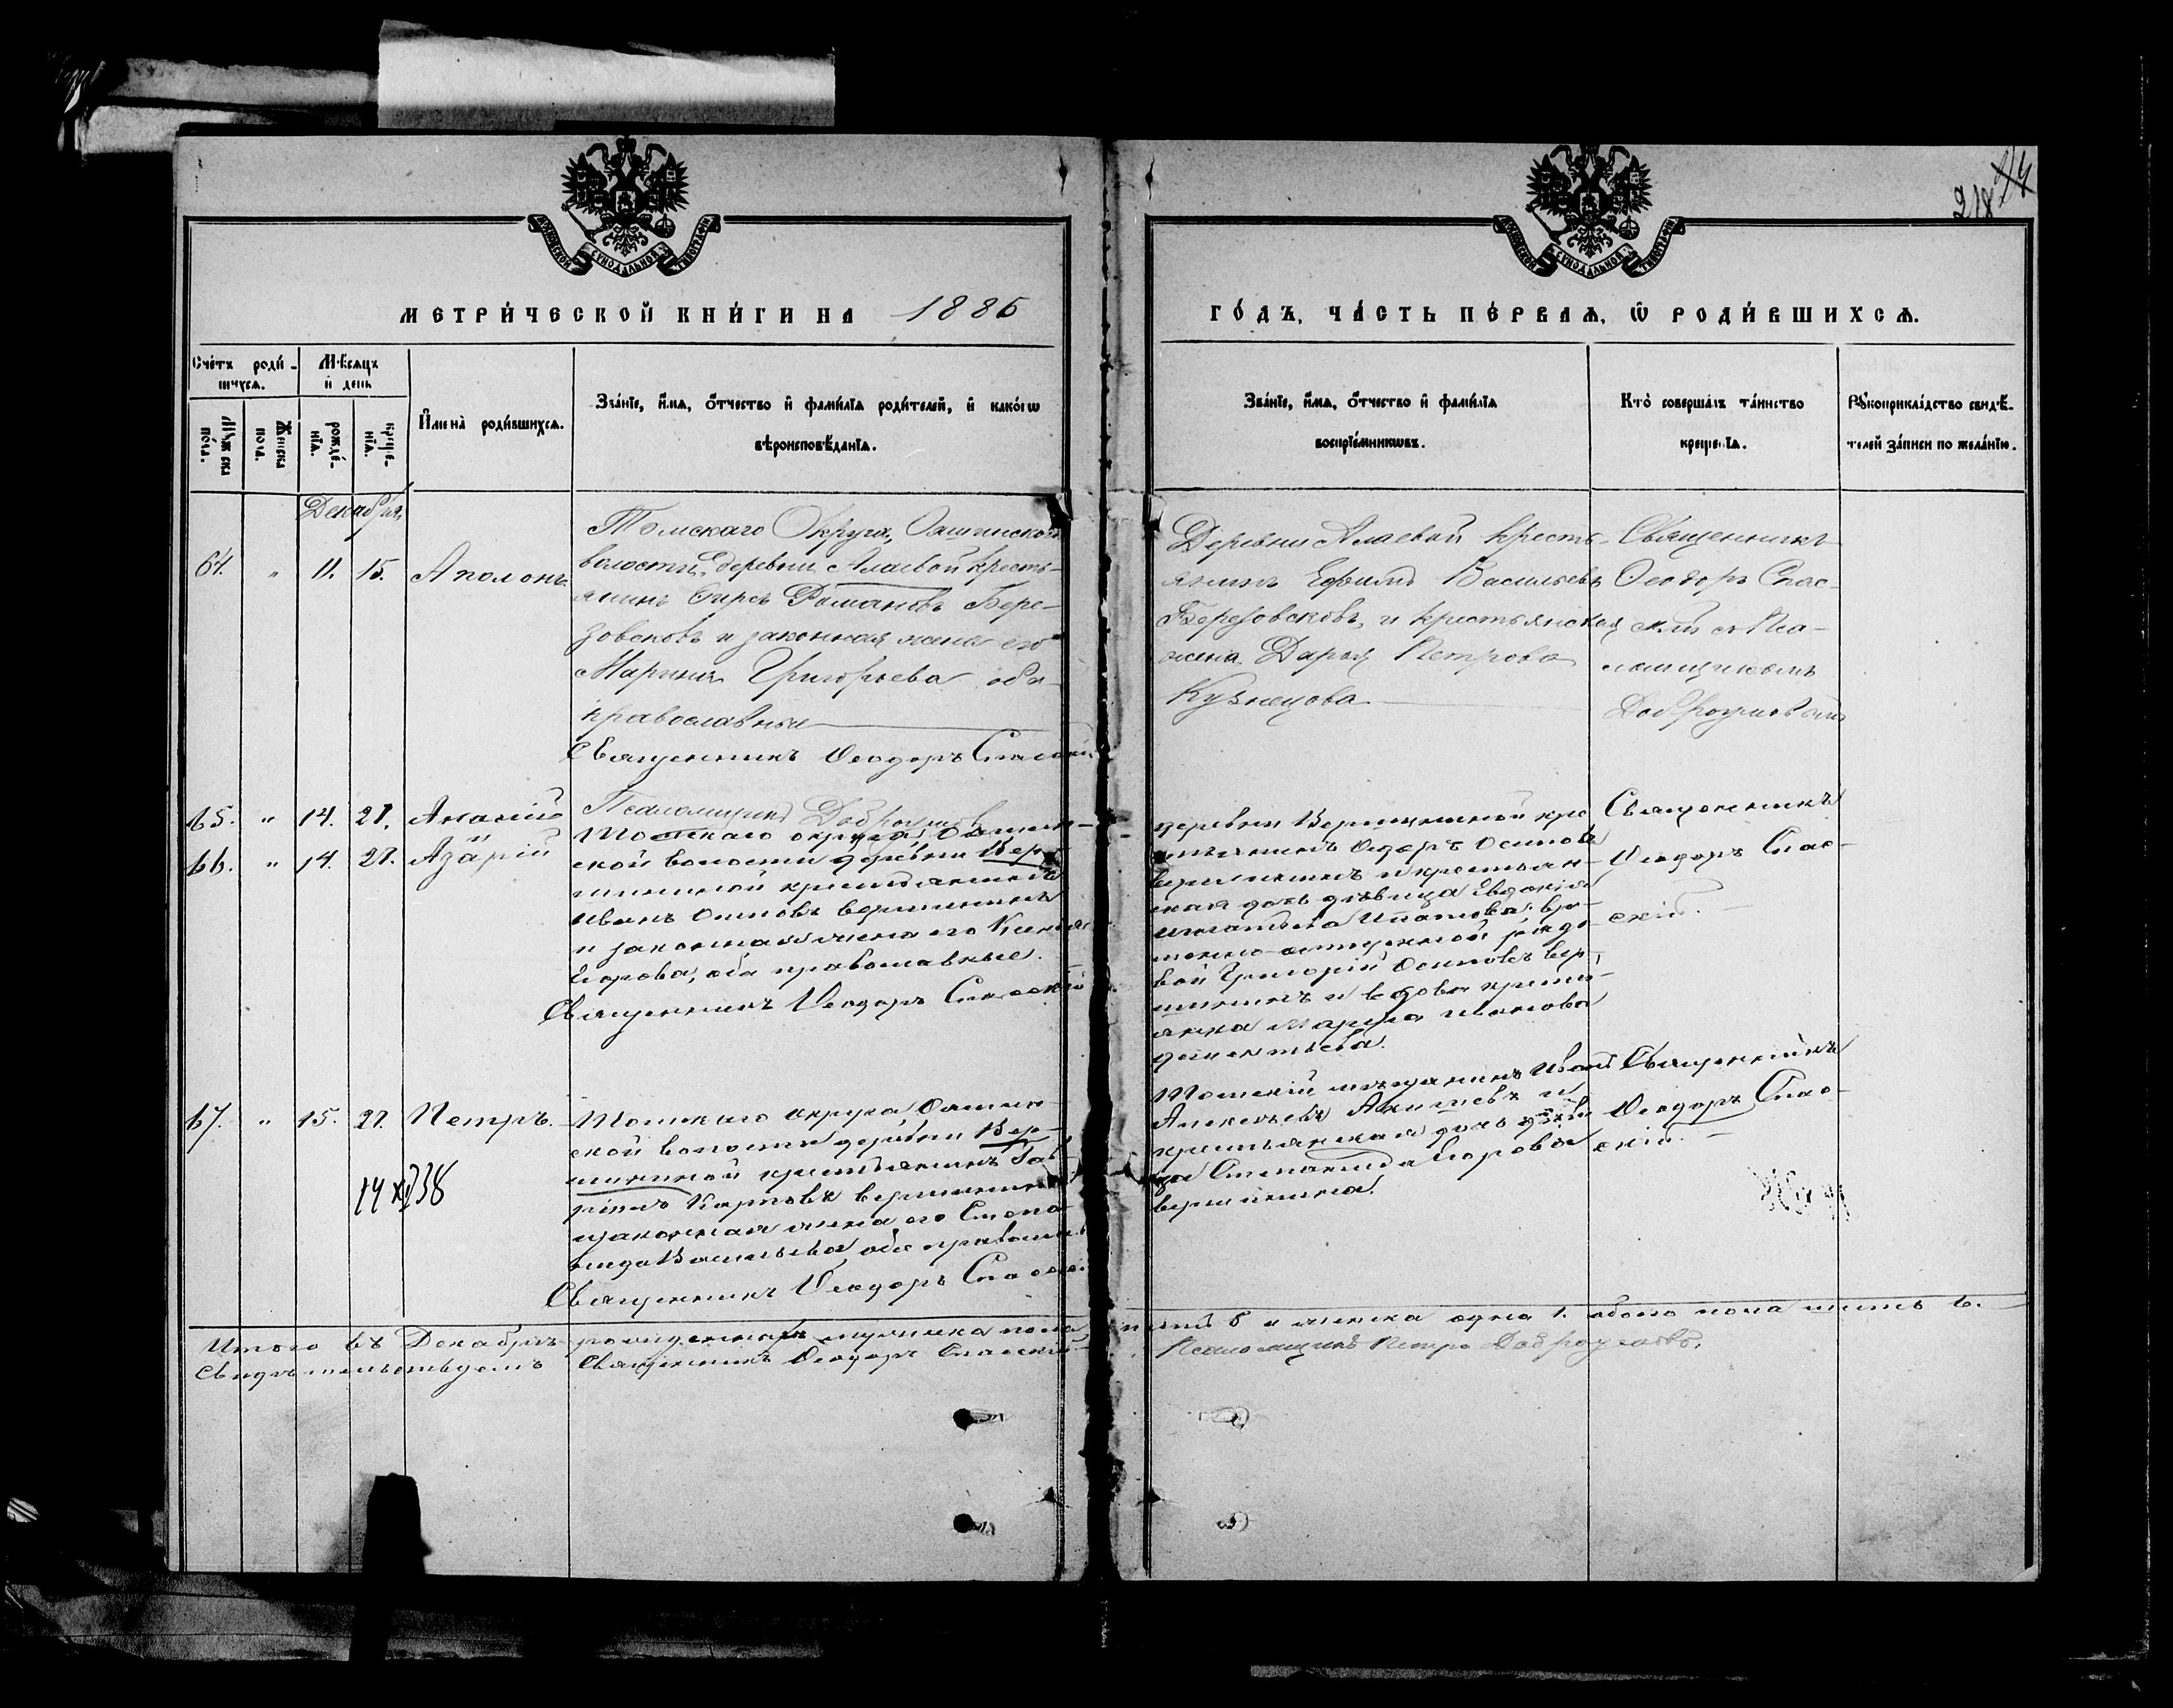 218
МЕТРИ́ЧЕСКОЙ КНИ́ГИ НА 1886
ГО́ДЪ, ЧА́СТЬ ПЕ́РВАЯ, Ѡ РОДИ́ВШИХСЯ.
Сче́тъ роди́-
шихся.
Мѣсяцъ
и҆ день
Мꙋжеска
по́ла.
Женска
пола.
рожде́-
нїя.
креще-
нїя.
И҆мена̀ роди́вшихся.
Зва́нїе, и҆́мѧ, о҆́тчество и҆ фами́лїѧ роди́телей, и҆ како́гѡ
вѣроисповѣ́данїѧ.
Зва́нїе, и҆́мѧ, о҆́тчество и҆ фами́лїѧ
воспрїе́мникѡвъ.
Кто̀ соверша́лъ та́инство
креще́нїѧ.
Рꙋкоприкла́дство свидѣ́-
телей за́писи по жела́нїю.
Декабря
64. " 11. 15. Аполонъ
Томскаго Округа, Ояшинской
волости, деревни Алаевой кресть-
янинъ Романовъ Бере-
зовсковъ и законная жена его
Марина Григорьева оба
православные
Священникъ Ѳеодоръ Спасскій
Псаломщикъ Доброумовъ
Деревни Алаевой Кресть-
янинъ Ефимъ Васильевъ
Березовсковъ, и крестьянская
жена Дарья Петрова
Кузнецова
Священникъ
Ѳеодоръ Спас-
скій съ Пса-
ломщикомъ
Доброумовымъ
65. " 14. 27. Ананій
66. " 14. 27. Азарій
Томскаго округа Ояшин-
ской волости деревни Вер-
шининой крестьянинъ
Иванъ Осиповъ Вершининъ
и законная жена его Ксенія
Егорова, оба православные.
Священникъ Ѳеодоръ Спасскій
деревни Вершининой кре-
стьянинъ Ѳедоръ Осиповъ
Вершининъ и крестьян-
ская дочь дѣвица Евдокія
Игнатьева Ипатова; вре-
менно-отпускной рядо-
вой Григорій Осиповъ Вер-
шининъ и вдова кресть-
янка Марѳа Иванова
Дементьева.
Священникъ
Ѳеодоръ Спас-
скій.
67. " 15. 27. Петръ.
14 XI 38
Томскаго округа Ояшин-
ской волости деревни Вер-
шининой крестьянинъ Гав-
ріилъ Карповъ Вершининъ
законная жена его Степа-
нида Васильева, оба правосл.
Священникъ Ѳеодоръ Спасскій
Томскій мѣщанинъ Иванъ
Алексѣевъ Акишевъ и
крестьянская дочь дѣви-
ца Степанида Егорова
Вершинина.
Священникъ
Ѳеодоръ Спас-
скій.
Итого въ Декабрѣ рожденныхъ мужска пола 5 и женска одна 1. обоего пола шесть 6.
Свидѣтельствуемъ Священникъ Ѳеодоръ Спасскій
Псаломщикъ Петръ Доброумовъ.